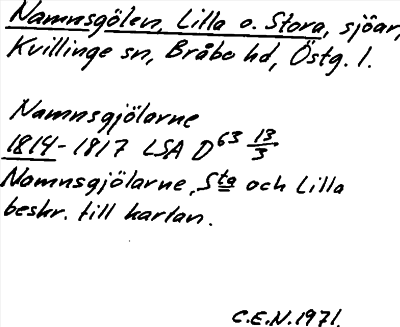 Namnsgölen, Lilla o. Stora, sjöar,
Kvillinge sn, Bråbo hd, Östg. l.
Namnsgjölarne
1814-1817 LSA D63 13/3
Namnsgjölarne, Sta och Lilla
beskr. till kartan.
C.E.N. 1971.